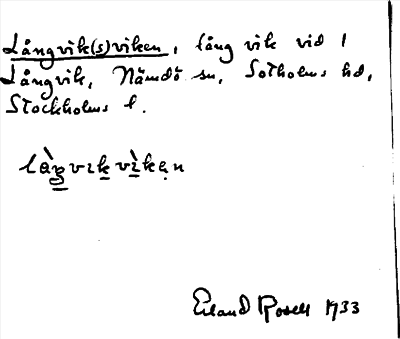 Långvik(s)viken, lång vik vid l
Långvik, Nämdö sn, Sotholms hd,
Stockholms l.
làŋvɩkvìkęn
Erland Rosell 1933